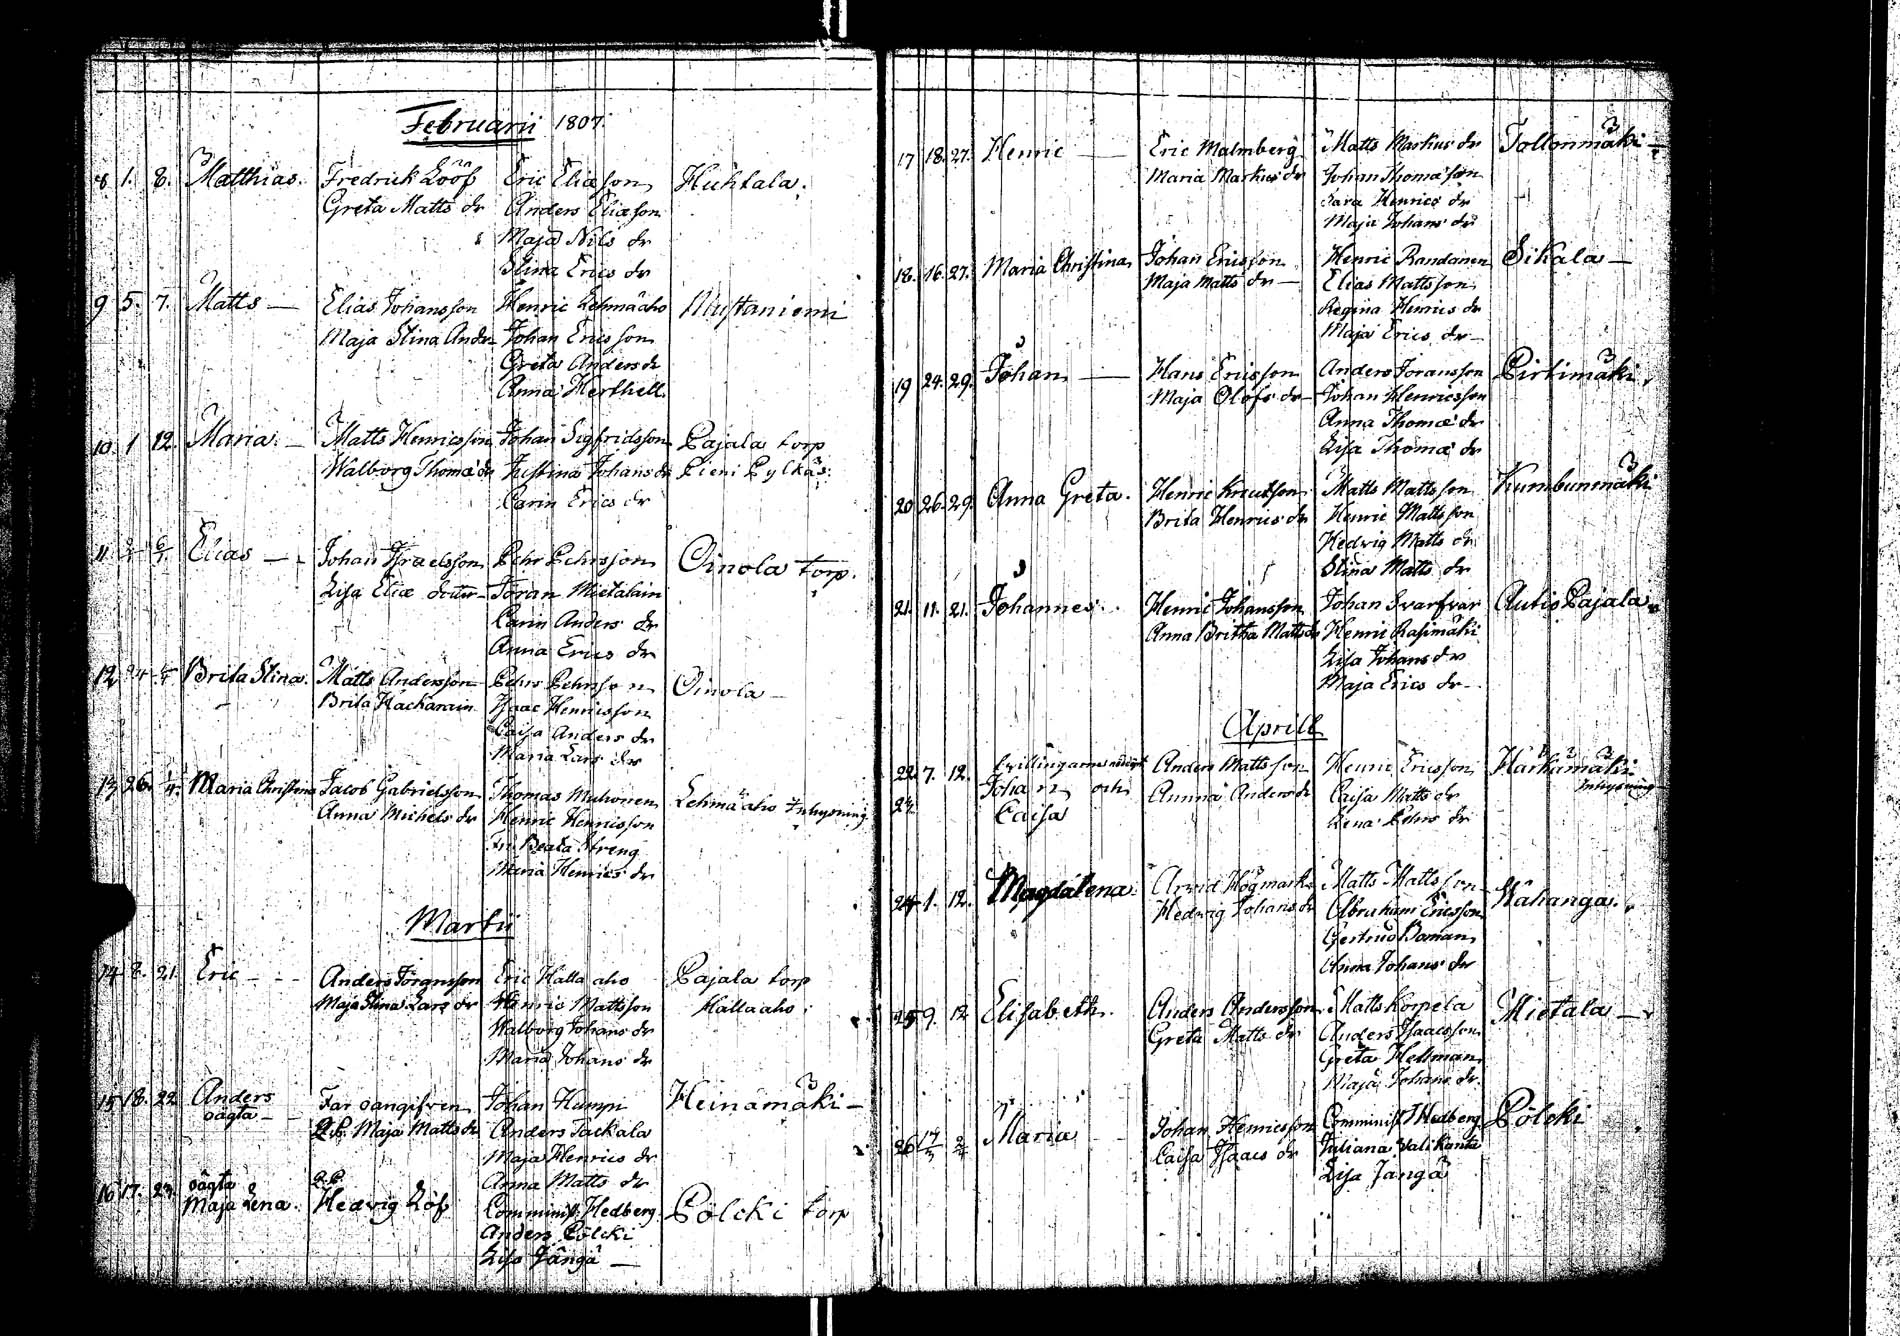 Februarii 1807.
8 1. 8. Matthias. Fredrick Lööf Eric Eliæson Huhtala.
Greta Matts dr Anders Eliæson
Maja Nils dr
Stina Erics dr
9 5. 7. Matts — Elias Johansson Henric Lehmäaho Mustaniemi
Maja Stina Andr Johan Ericsson
Greta Anders dr
Anna Herthell
10. 1 12. Maria. — Matts Henricsson Johan Sigfridsson Pajala torp
Walborg Thomæ dr Justina Johans dr Pieni Pylkäs:
Carin Erics dr
11. Elias — Johan Israelsson Pehr Pehrsson Oinola torp.
Lisa Eliæ dotter — Jöran Mietalain
Carin Anders dr
Anna Erics dr
12 Brita Stina. Matts Andersson Pehr Pehrsson Oinola —
Brita Hacharain Isaac Henricsson
Caisa Anders dr
Maria Lars dr
13 26. 1/4. Maria Christina Jacob Gabrielsson Thomas Muhoinen Lehmäaho Inhysning
Anna Michels dr Henric Henricsson
Fru Beata Streng
Maria Henrics dr
Martii
14 8. 21. Eric — Anders Jörgensson Eric Hallaaho Pajala torp
Maja Stina Lars dr Henric Mattsson Hallaaho:
Walborg Johans dr
Maria Johans dr
15 18. 22 Anders Far oangifven Johan Humpi Heinämäki —
oägta — Q.P. Maja Matts dr Anders Tackala
Maja Henrics dr
Anna Matts dr
16 17. 23. oägta Q.P.
Maja Lena. Hedvig Löf Comminist. Hedberg Pölcki torp
Anders Pölcki
Lisa Jängä —
17 18. 27. Henric — Eric Malmberg Matts Markus dr Tollonmäki —
Maria Markus dr Johan Thomæson
Sara Henrics dr
Maja Johans dr
18. 16. 27. Maria Christina Johan Ericsson Henric Randanen Sikala —
Maja Matts dr — Elias Mattsson
Regina Henrics dr
Maja Erics dr —
19 24. 29. Johan — Hans Ericsson Anders Jöransson Pirtimäki.
Maja Olofs dr — Johan Henricsson
Anna Thomæ dr
Lisa Thomæ dr
20 26. 29. Anna Greta. Henric Knutsson Matts Mattsson Kumbunmäki
Brita Henrics dr Henric Mattsson
Hedvig Matts dr
Stina Matts dr
21. 11. 21. Johannes. Henric Johansson Johan Svarfvar Autio Pajala
Anna Britha Matts dr Henric Rasimäki
Lisa Johans dr
Maja Erics dr —
Aprill
22. 7. 12. tvillingarne Anders Mattsson Henric Ericsson Härkämäki
23. Johan och Annna Anders dr Caisa Matts dr inhysning
Caisa Lena Pehrs dr
24 1. 12. Magdalena. Arvid Högmark Matts Mattsson Wahanga.
Hedvig Johans dr Abraham Ericsson
Gertrud Boman
Anna Johans dr
25 9. 12 Elisabeth. Anders Andersson Matts Korpela Mietala —
Greta Matts dr Anders Isaacsson
Greta Hellman
Maja Johans dr.
26 Maria Johan Henricsson Comminist Hedberg Pölcki
Caisa Isaacs dr Juliana Valikanta
Lisa Jangä